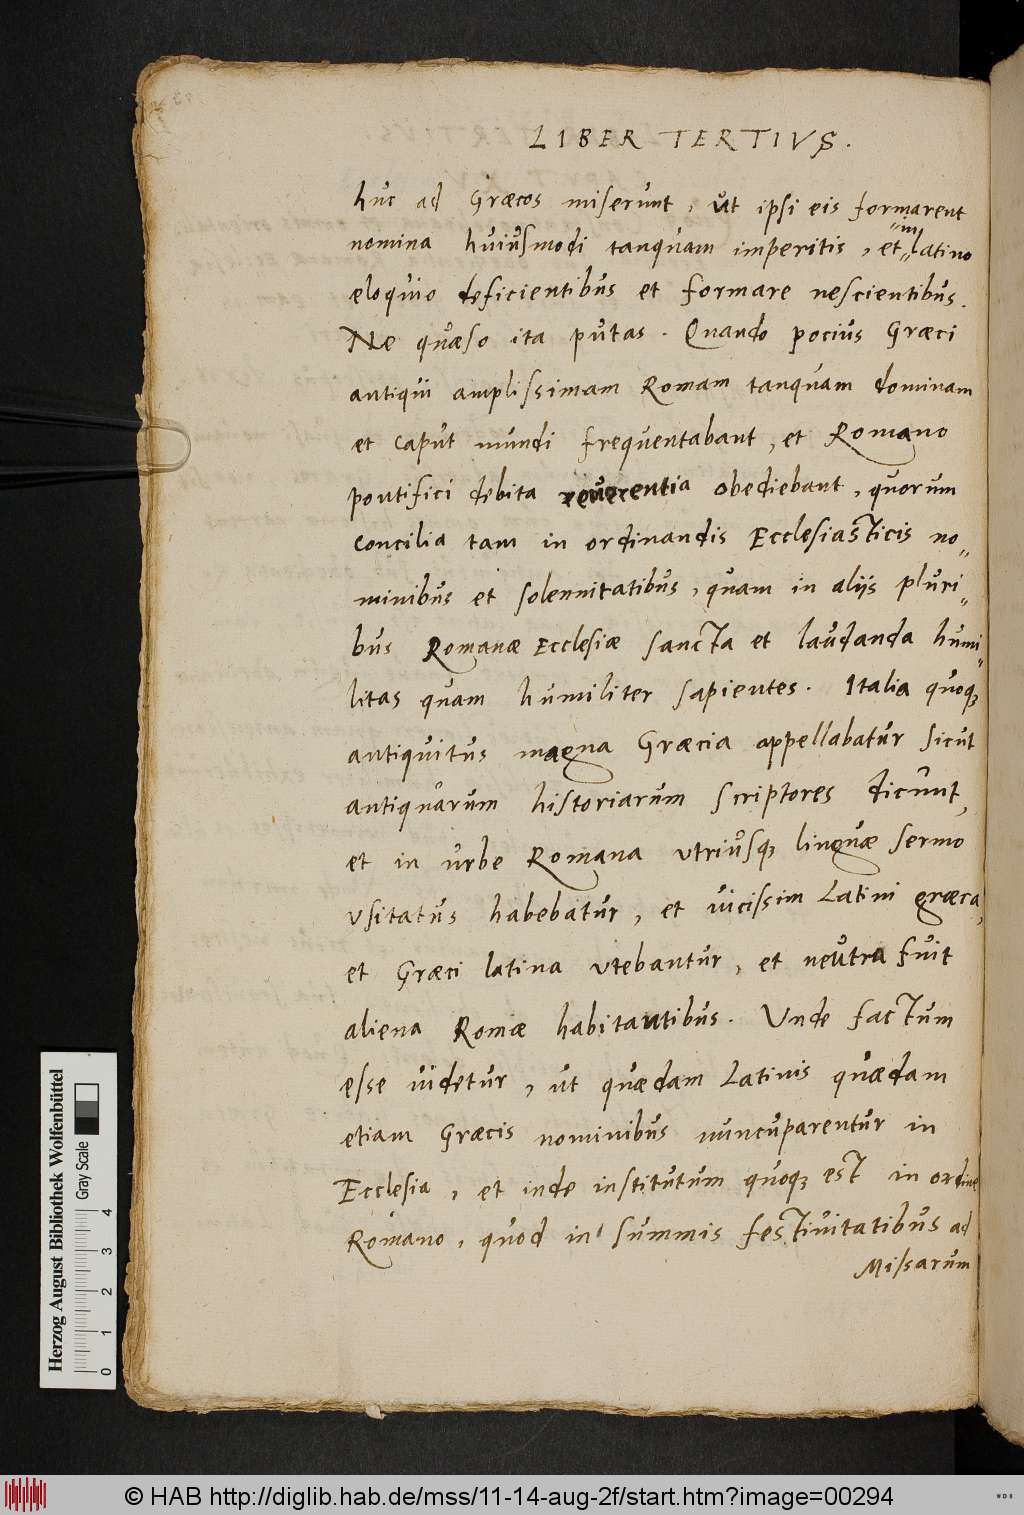 LIBER TERTIVS.
huc ad Græcos miserunt, ut ipsi eis formarent
nomina huiusmodi tanquam imperitis, et in latino
æloquio deficientibus et formare nescientibus.
Ne quæso ita putas. Quando pocius Græci
antiqui amplissimam Romam tanquam dominam
et caput mundi frequentabant, et Romano
pontifici debita reuerentia obediebant, quorum
concilia tam in ordinandis Ecclesiasticis no„
minibus et solennitatibus, quam in alijs pluri„
bus Romanæ Ecclesiæ sancta et laudanda humi„
litas quam humiliter sapientes. Italia quoq;
antiquitus magna Græcia appellabatur sicut
antiquarum historiarum scriptores dicunt,
et in urbe Romana utriusq; linguæ sermo
vsitatus habebatur, et uicissim Latini græca,
et Græci latina vtebantur, et neutra fuit
aliena Romæ habitantibus. Unde factum
esse uidetur, ut quædam Latinis quædam
etiam Græcis nominibus nuncuparentur in
Ecclesia, et inde institutum quoq; est in ordine
Romano, quod in summis festiuitatibus ad
Missarum
Herzog August Bibliothek Wolfenbüttel
Gray Scale
0 1 2 3 4
© HAB http://diglib.hab.de/mss/11-14-aug-2f/start.htm?image=00294